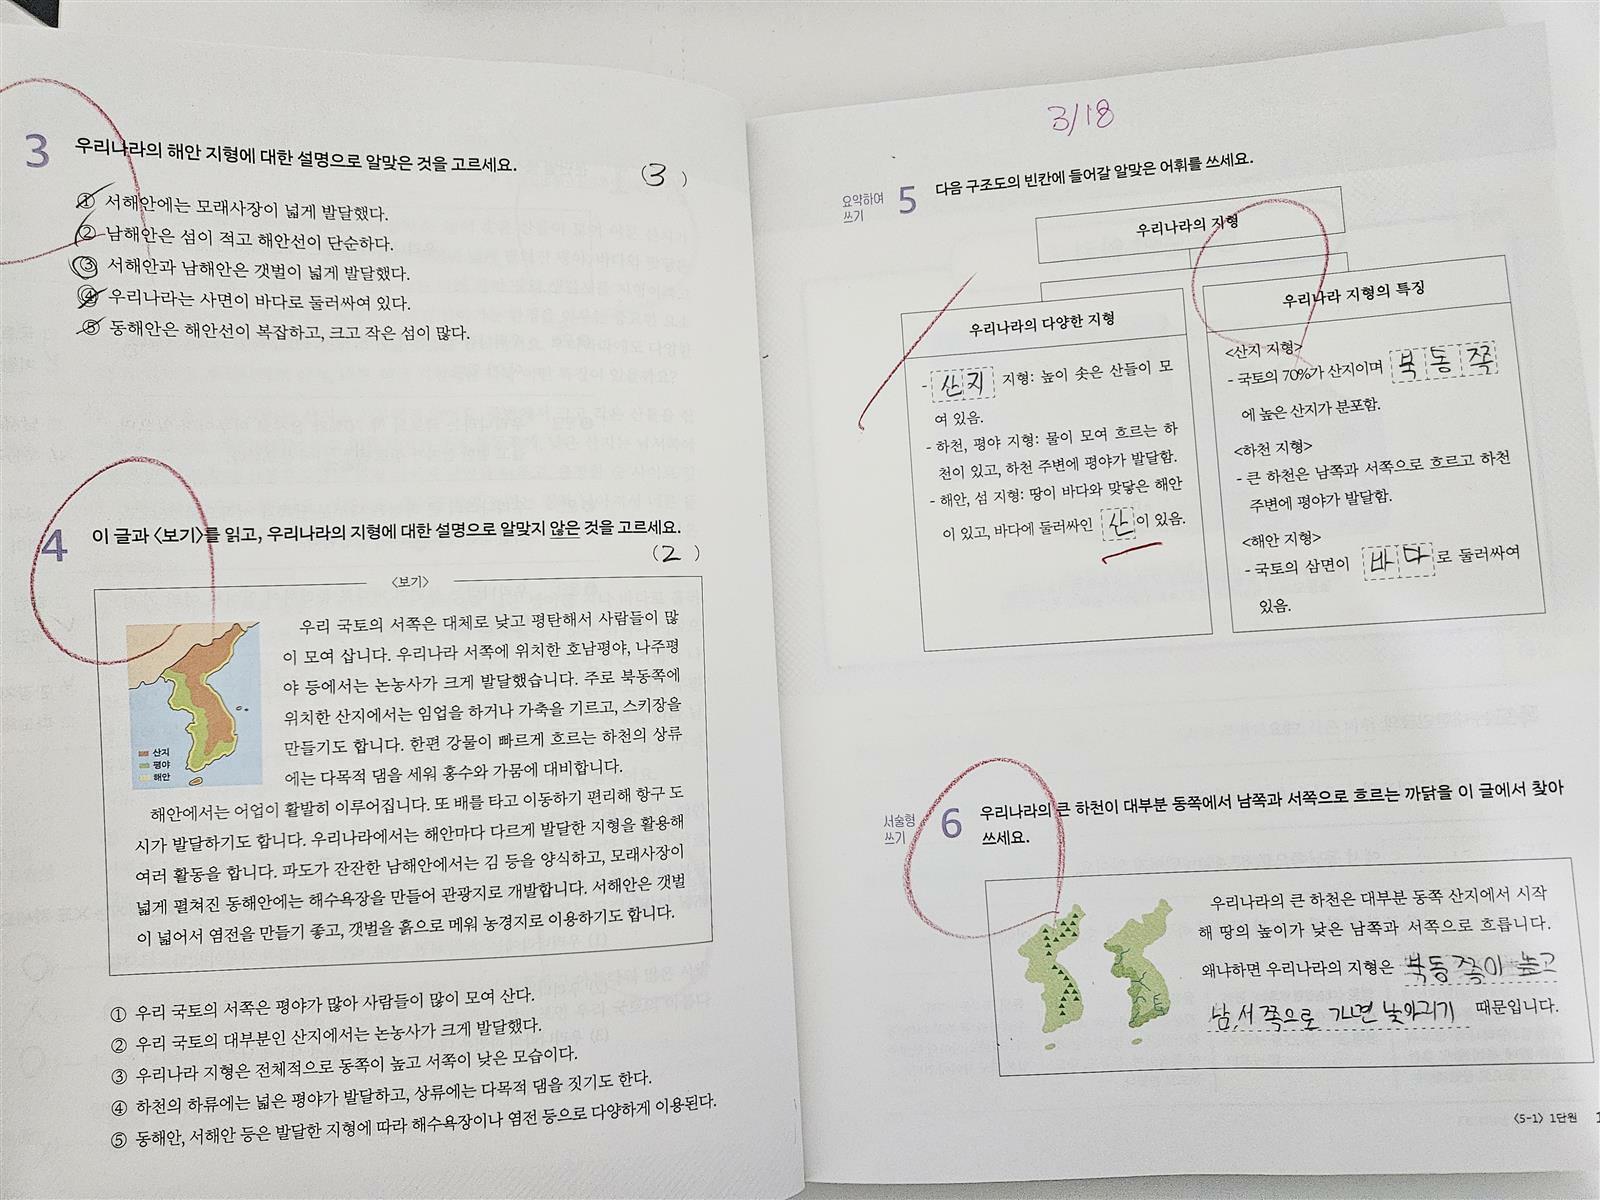 3 우리나라의 해안 지형에 대한 설명으로 알맞은 것을 고르세요.
(3)
① 서해안에는 모래사장이 넓게 발달했다.
② 남해안은 섬이 적고 해안선이 단순하다.
③ 서해안과 남해안은 갯벌이 넓게 발달했다.
④ 우리나라는 사면이 바다로 둘러싸여 있다.
⑤ 동해안은 해안선이 복잡하고, 크고 작은 섬이 많다.
4 이 글과 <보기>를 읽고, 우리나라의 지형에 대한 설명으로 알맞지 않은 것을 고르세요.
(2)
<보기>
우리 국토의 서쪽은 대체로 낮고 평탄해서 사람들이 많
이 모여 삽니다. 우리나라 서쪽에 위치한 호남평야, 나주평
야 등에서는 논농사가 크게 발달했습니다. 주로 북동쪽에
위치한 산지에서는 임업을 하거나 가축을 기르고, 스키장을
만들기도 합니다. 한편 강물이 빠르게 흐르는 하천의 상류
에는 다목적 댐을 세워 홍수와 가뭄에 대비합니다.
산지
평야
해안
해안에서는 어업이 활발히 이루어집니다. 또 배를 타고 이동하기 편리해 항구 도
시가 발달하기도 합니다. 우리나라에서는 해안마다 다르게 발달한 지형을 활용해
여러 활동을 합니다. 파도가 잔잔한 남해안에서는 김 등을 양식하고, 모래사장이
넓게 펼쳐진 동해안에는 해수욕장을 만들어 관광지로 개발합니다. 서해안은 갯벌
이 넓어서 염전을 만들기 좋고, 갯벌을 흙으로 메워 농경지로 이용하기도 합니다.
① 우리 국토의 서쪽은 평야가 많아 사람들이 많이 모여 산다.
② 우리 국토의 대부분인 산지에서는 논농사가 크게 발달했다.
③ 우리나라 지형은 전체적으로 동쪽이 높고 서쪽이 낮은 모습이다.
④ 하천의 하류에는 넓은 평야가 발달하고, 상류에는 다목적 댐을 짓기도 한다.
⑤ 동해안, 서해안 등은 발달한 지형에 따라 해수욕장이나 염전 등으로 다양하게 이용된다.
3/18
요약하여
쓰기
5 다음 구조도의 빈칸에 들어갈 알맞은 어휘를 쓰세요.
우리나라의 지형
우리나라의 다양한 지형
- 산지 지형: 높이 솟은 산들이 모
여 있음.
- 하천, 평야 지형: 물이 모여 흐르는 하
천이 있고, 하천 주변에 평야가 발달함.
- 해안, 섬 지형: 땅이 바다와 맞닿은 해안
이 있고, 바다에 둘러싸인 산이 있음.
우리나라 지형의 특징
<산지 지형>
- 국토의 70%가 산지이며 북동쪽
에 높은 산지가 분포함.
<하천 지형>
- 큰 하천은 남쪽과 서쪽으로 흐르고 하천
주변에 평야가 발달함.
<해안 지형>
- 국토의 삼면이 바다로 둘러싸여
있음.
서술형
쓰기
6 우리나라의 큰 하천이 대부분 동쪽에서 남쪽과 서쪽으로 흐르는 까닭을 이 글에서 찾아
쓰세요.
우리나라의 큰 하천은 대부분 동쪽 산지에서 시작
해 땅의 높이가 낮은 남쪽과 서쪽으로 흐릅니다.
왜냐하면 우리나라의 지형은 북동쪽이 높고
남서쪽으로 가면 낮아지기 때문입니다.
<5-1> 1단원